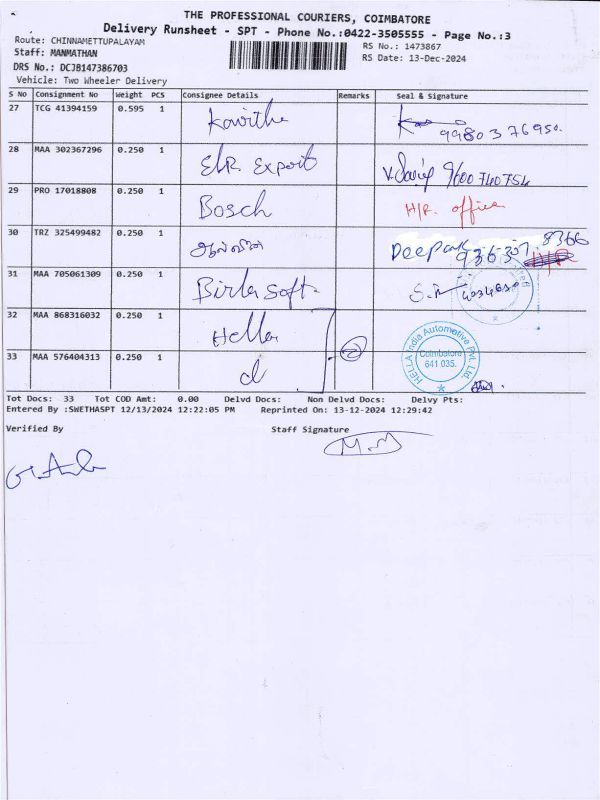 THE PROFESSIONAL COURIERS, COIMBATORE
Delivery Runsheet - SPT - Phone No.:0422-3505555 - Page No.:3
Route: CHINNAMETTUPALAYAM
Staff: MANMATHAN
DRS No.: DCJB147386703
Vehicle: Two Wheeler Delivery
RS No.: 1473867
RS Date: 13-Dec-2024
S No Consignment No Weight PCS Consignee Details Remarks Seal & Signature
27 TCG 41394159 0.595 1 Kavitha 9980376950.
28 MAA 302367296 0.250 1 ELR Export 9600740754
29 PRO 17018808 0.250 1 Bosch H/R. office
30 TRZ 325499482 0.250 1 Deepak 936307 8366
31 MAA 705061309 0.250 1 Birla Soft.
32 MAA 868316032 0.250 1 Hella
33 MAA 576404313 0.250 1 d
2
HELLA India Automotive Pvt. Ltd.
Coimbatore
641 035.
Tot Docs: 33 Tot COD Amt: 0.00 Delvd Docs: Non Delvd Docs: Delvy Pts:
Entered By :SWETHASPT 12/13/2024 12:22:05 PM Reprinted On: 13-12-2024 12:29:42
Verified By Staff Signature